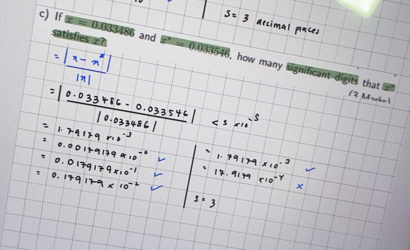 S = 3 decimal places
c) If x = 0.033486 and x* = 0.033546, how many significant digits that x*
satisfies x?
(2 Marks)
= |x - x*|
|x|
= |0.033486 - 0.033546|
|0.033486|
< 5 x10^-s
= 1.79179 x10^-3
= 0.00179179 x10^-0 ✓
= 0.0179179 x10^-1 ✓
= 0.179179 x 10^-2 ✓
= 1.79179 x10^-3 ✓
= 17.9179 x10^-4 x
s = 3